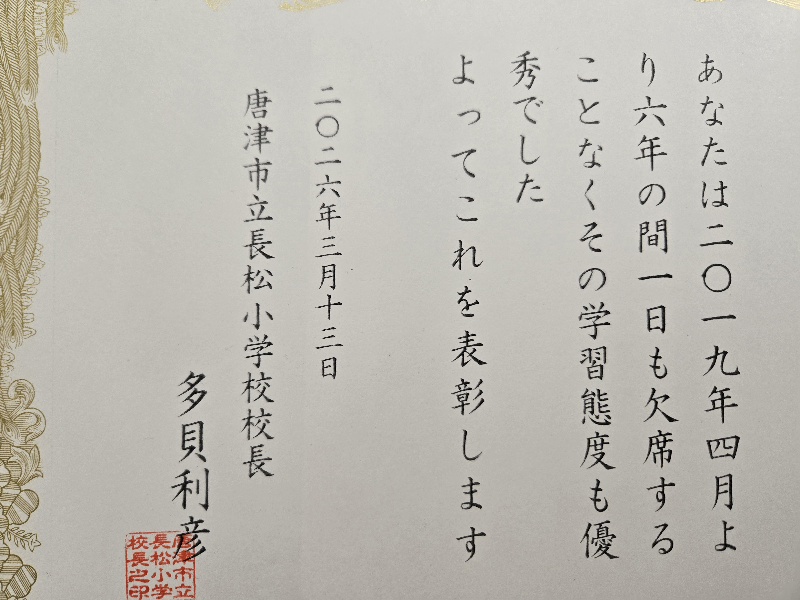 あなたは二〇一九年四月よ
り六年の間一日も欠席する
ことなくその学習態度も優
秀でした
よってこれを表彰します
二〇二六年三月十三日
唐津市立長松小学校校長
多貝利彦
唐津市立
長松小学
校長之印